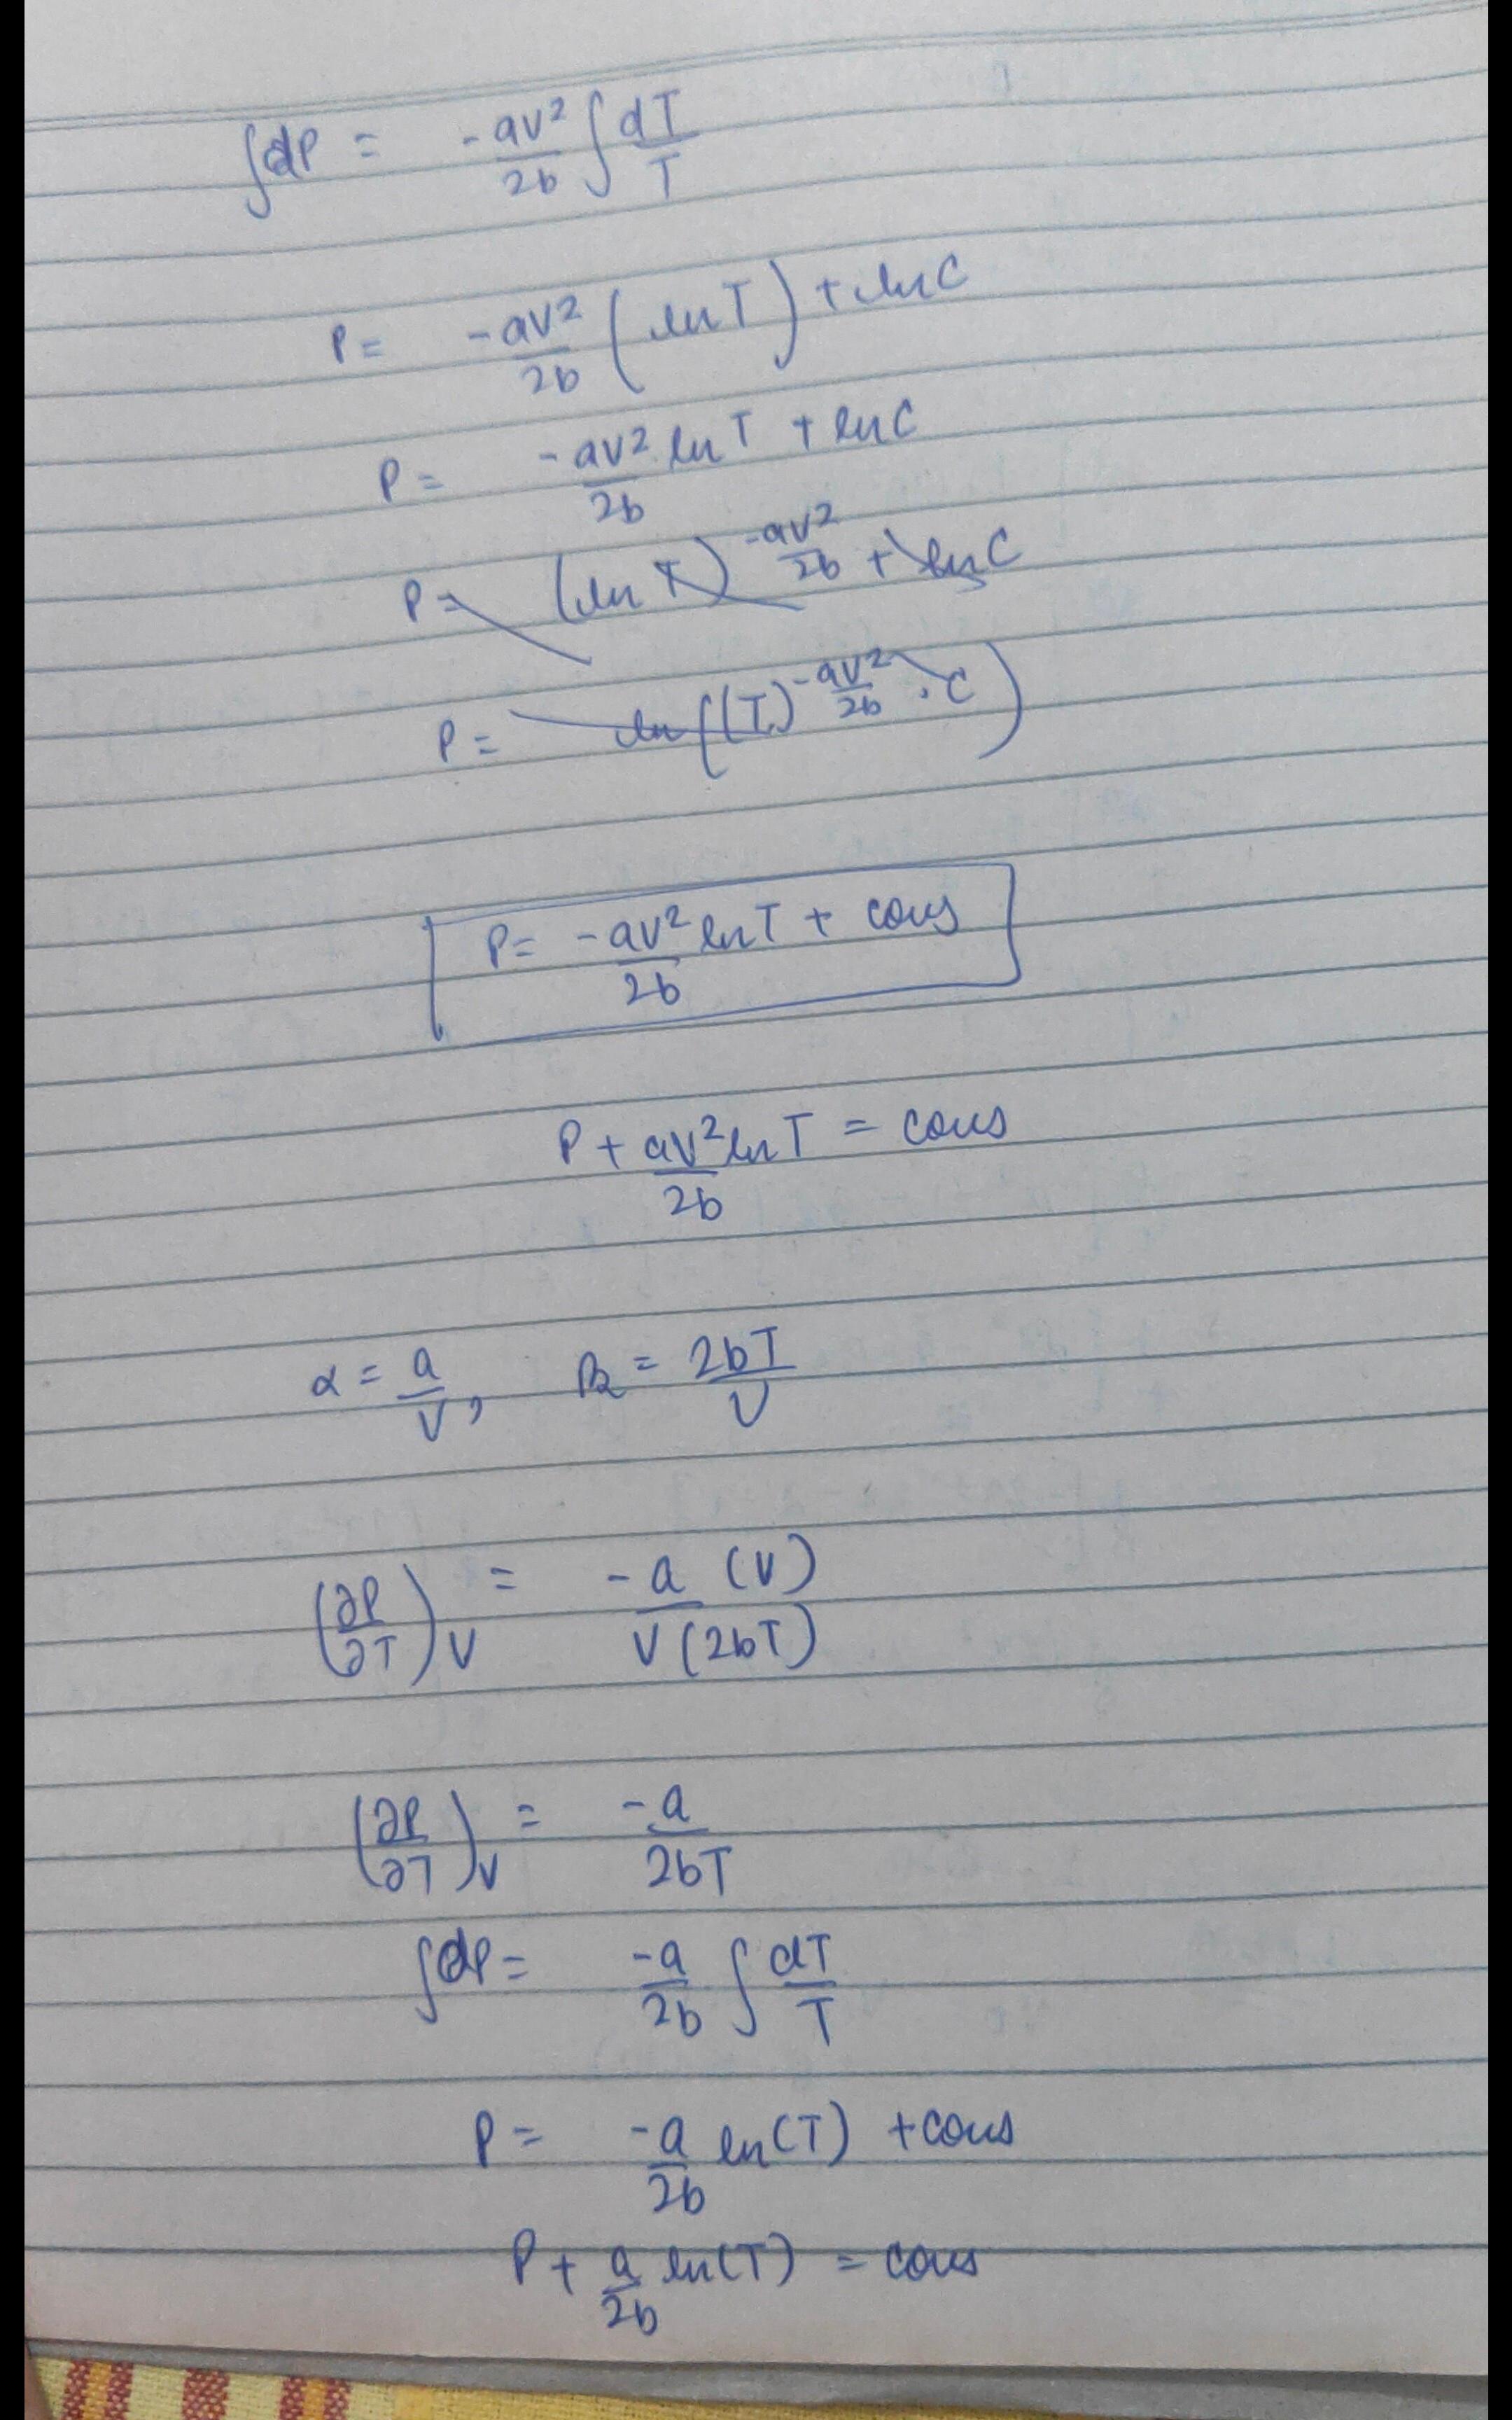 ∫dP = -av²/2b ∫ dT/T
P = -av²/2b (ln T) + ln C
P = -av²/2b ln T + ln C
P = (ln T)^(-av²/2b) + ln C
P = ln((T)^(-av²/2b) · C)
P = -av²/2b ln T + cons
P + av²/2b ln T = cons
α = a/V, = 2bT/V
(∂P/∂T)V = -a (V)/V (2bT)
(∂P/∂T)V = -a/2bT
∫dP = -a/2b ∫ dT/T
P = -a/2b ln(T) + cons
P + a/2b ln(T) = cons